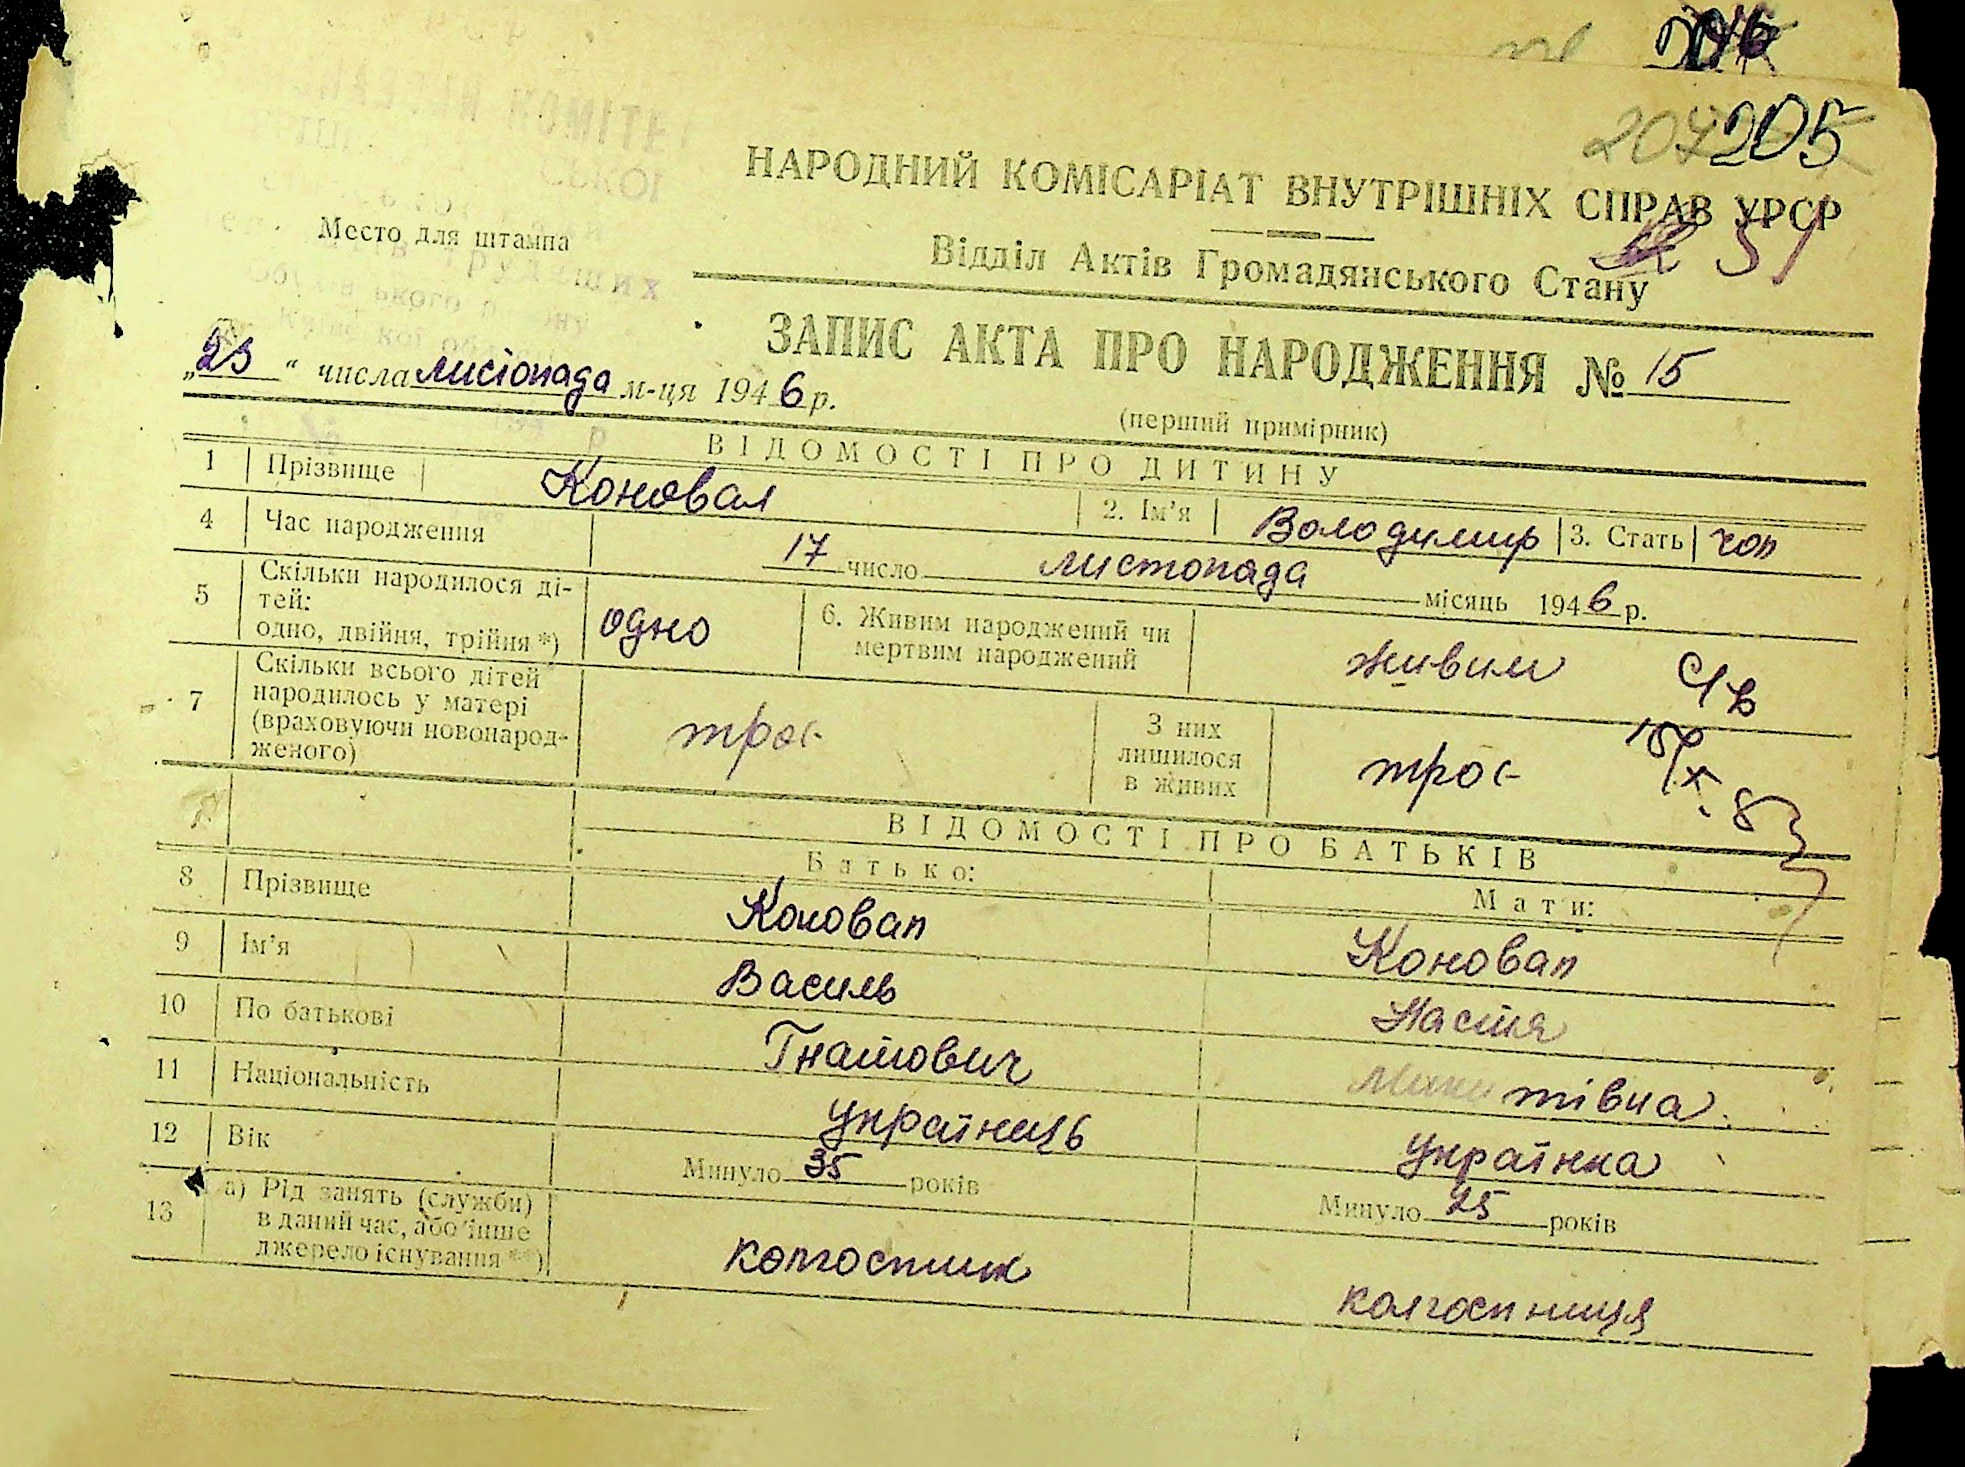 205
НАРОДНИЙ КОМІСАРІАТ ВНУТРІШНІХ СПРАВ УРСР
51
Место для штампа
Відділ Актів Громадянського Стану
ЗАПИС АКТА ПРО НАРОДЖЕННЯ № 15
„23“ числа листопада м-ця 1946 р.
(перший примірник)
ВІДОМОСТІ ПРО ДИТИНУ
1 Прізвище Коновал 2. Ім'я Володимир 3. Стать чол
4 Час народження 17 число листопада місяць 1946 р.
5 Скільки народилося ді-
тей:
одно, двійня, трійня *) одно 6. Живим народжений чи
мертвим народжений живим
7 Скільки всього дітей
народилось у матері
(враховуючи новонарод-
женого) троє
З них
лишилося
в живих троє
ВІДОМОСТІ ПРО БАТЬКІВ
Батько: Мати:
8 Прізвище Коновал Коновал
9 Ім'я Василь Настя
10 По батькові Гнатович Микитівна
11 Національність українець українка
12 Вік Минуло 35 років Минуло 25 років
13 а) Рід занять (служби)
в даний час, або інше
джерело існування **) колгоспник колгоспниця